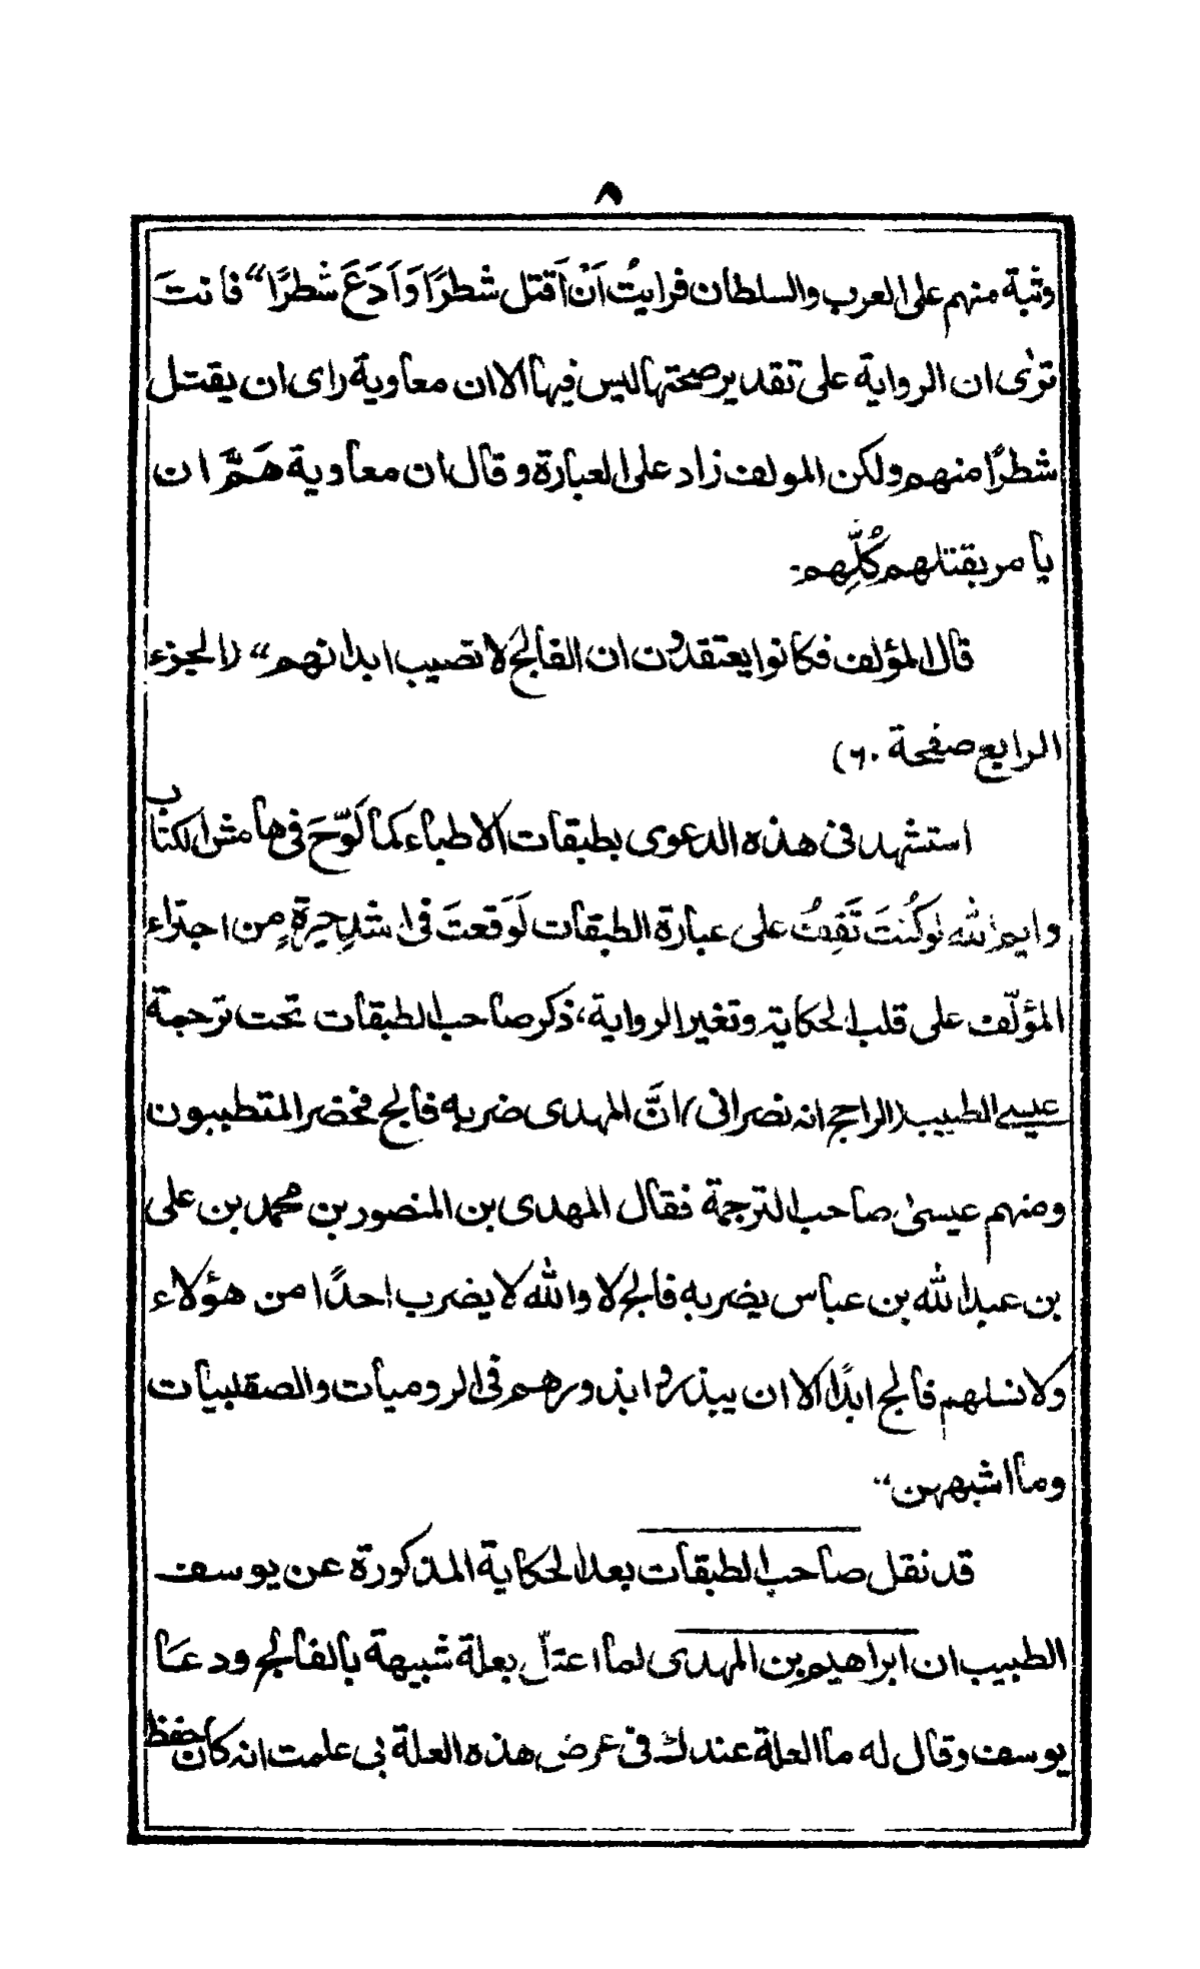 ٨
وثبة منهم على العرب والسلطان فرايتُ اَنْ اَقتل شطرًا وَاَدَعَ شطرًا“ فانتَ
ترٰى ان الرواية على تقدير صحتها ليس فيها الا ان معاوية راى ان يقتل
شطرًا منهم ولكن المولف زاد على العبارة وقال ان معاوية هَمَّ ان
يامر بقتلهم كُلِّهم۔
قال المؤلف فكانوا يعتقدون ان الفالج لا تصيب ابدانهم“ (الجزء
الرابع صفحة ٦٠)
استشهد فى هذه الدعوى بطبقات الاطباء كما لَوّحَ فى هامش الكتاب
وايم الله لوكُنتَ تَقِفُ على عبارة الطبقات لَوَقعتَ فى اشدِ حيرةٍ مِن اجتراء
المؤلّف على قلب الحكاية وتغير الرواية، ذكر صاحب الطبقات تحت ترجمة
عيسے الطبيب (الراجح انه نصرانى) انَّ المهدى ضربه فالج فحضر المتطببون
ومنهم عيسىٰ صاحب الترجمة فقال المهدى بن المنصور بن محمد بن على
بن عبد الله بن عباس يضربه فالج لا والله لا يضرب احدًا من هؤلاء
ولا نسلهم فالج ابدًا الا ان يبذروا بذورهم فى الروميات والصقلبيات
وما اشبههن“
قد نقل صاحب الطبقات بعد الحكاية المذكورة عن يوسف
الطبيب ان ابراهيم بن المهدى لما اعتلّ بعلة شبيهة بالفالج ودعا
يوسف وقال له ما العلة عندك فى عرض هذه العلة بى علمت انه كان حفظ